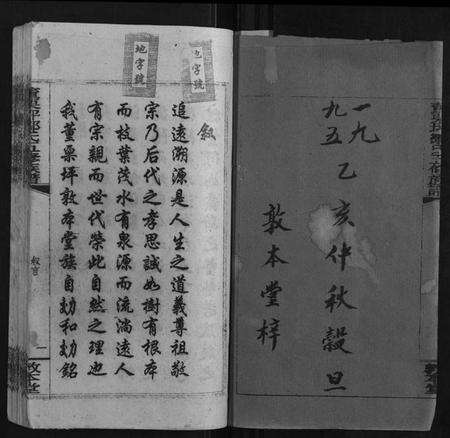 一九九五 乙亥仲秋穀旦
敦本堂梓
地字號
地字號
敘
追遠溯源是人生之道義尊祖敬
宗乃后代之孝思誠如樹有根本
而枝葉茂水有泉源而流淌遠人
有宗親而世代榮此自然之理也
我董粟坪敦本堂族自勃和勃銘
敘言
敦本堂
敦本堂